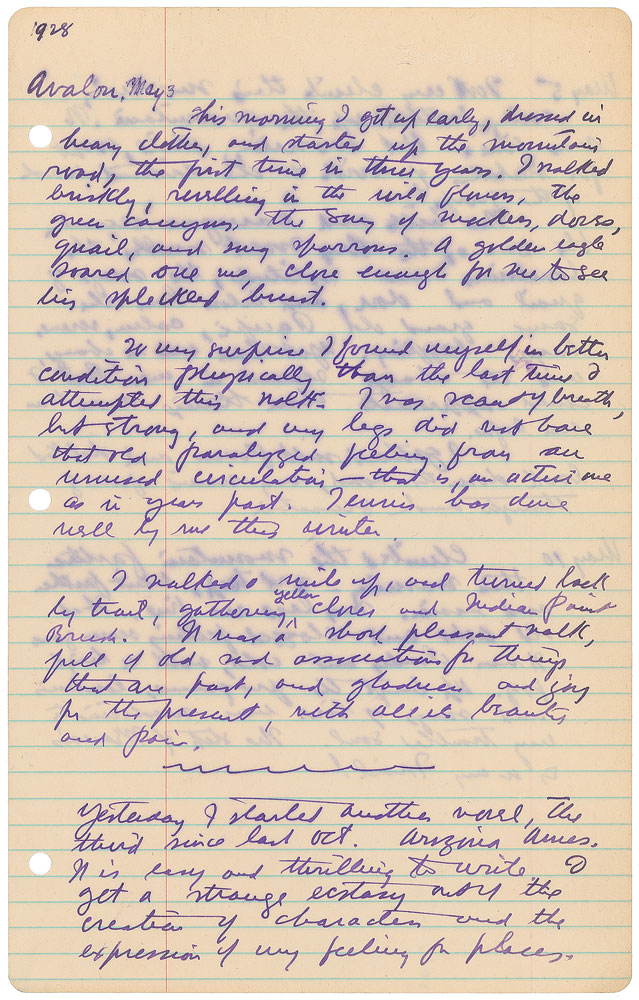 1928
Avalon, May 3
This morning I got up early, dressed in
heavy clothes, and started up the mountain
road, the first time in three years. I walked
briskly, revelling in the wild flowers, the
green canyons, the song of mockers, doves,
quail, and song sparrows. A golden eagle
soared over me, close enough for me to see
his speckled breast.
To my surprise I found myself in better
condition physically than the last time I
attempted this walk. I was scant of breath,
but strong, and my legs did not have
that old paralyzed feeling from an
unused circulation — that is, an active one
as in years past. Tennis has done
well by me this winter.
I walked a mile up, and turned back
by trail, gathering yellow clover and Indian Paint
Brush. It was a short pleasant walk,
full of old sad associations for things
that are past, and gladness and joy
for the present, with all its beauty
and pain.
Yesterday I started another novel, the
third since last Oct. Arizona Ames.
It is easy and thrilling to write. I
get a strange ecstasy out of the
creation of characters and the
expression of my feeling for places.